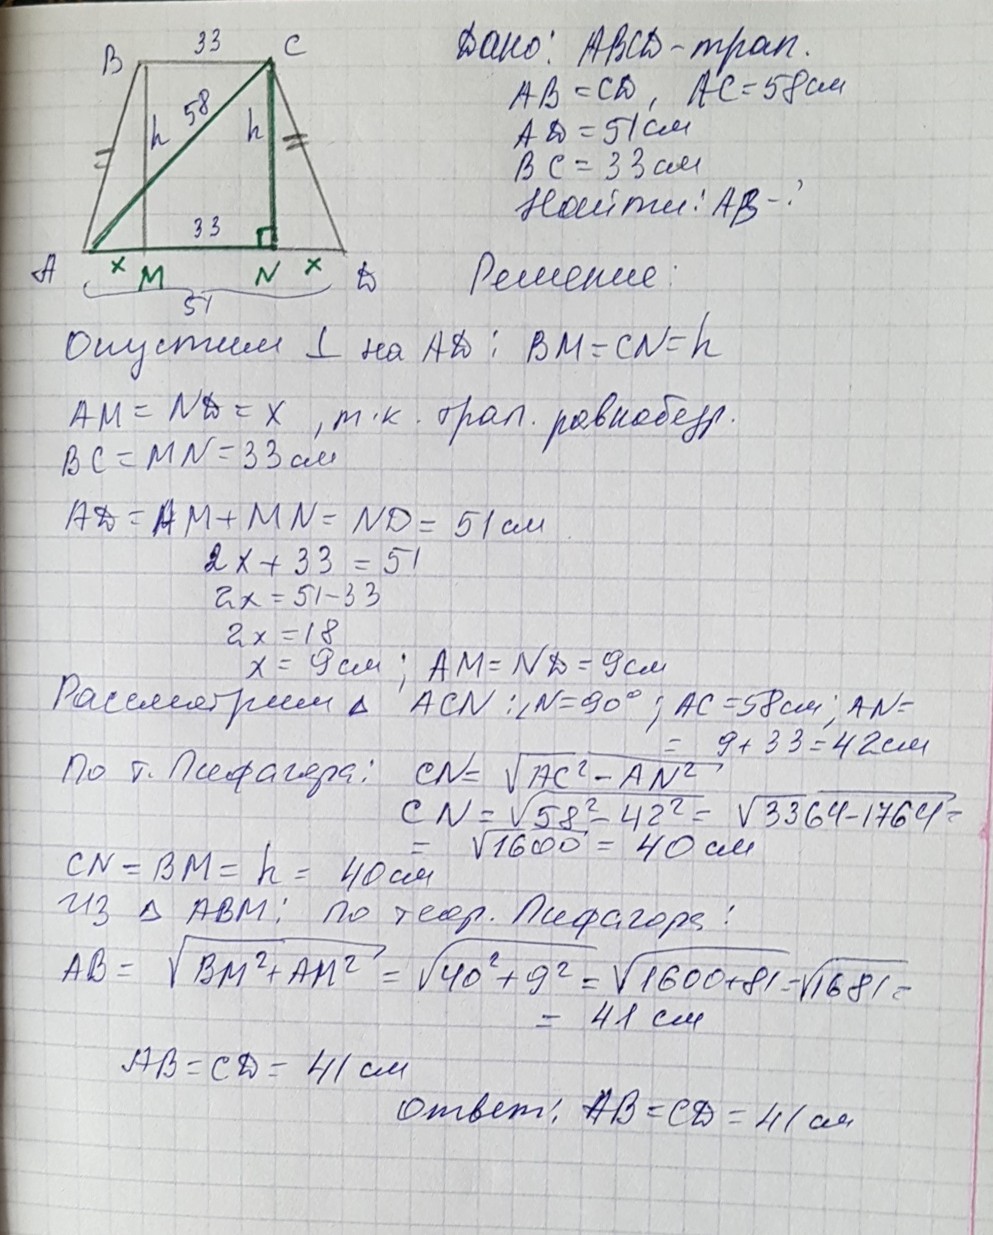 33
B
C
58
h
h
33
A
x
M
N
x
D
51
Дано: ABCD - трап.
AB = CD, AC = 58 см
AD = 51 см
BC = 33 см
Найти: AB - ?
Решение:
Опустим ⊥ на AD: BM = CN = h
AM = ND = x, т.к. трап. равнобедр.
BC = MN = 33 см
AD = AM + MN = ND = 51 см
2x + 33 = 51
2x = 51 - 33
2x = 18
x = 9 см; AM = ND = 9 см
Рассмотрим Δ ACN: ∠N = 90°; AC = 58 см; AN =
= 9 + 33 = 42 см
По т. Пифагора: CN = √AC² - AN²
CN = √58² - 42² = √3364 - 1764 =
= √1600 = 40 см
CN = BM = h = 40 см
Из Δ ABM: по теор. Пифагора:
AB = √BM² + AM² = √40² + 9² = √1600 + 81 = √1681 =
= 41 см
AB = CD = 41 см
Ответ: AB = CD = 41 см